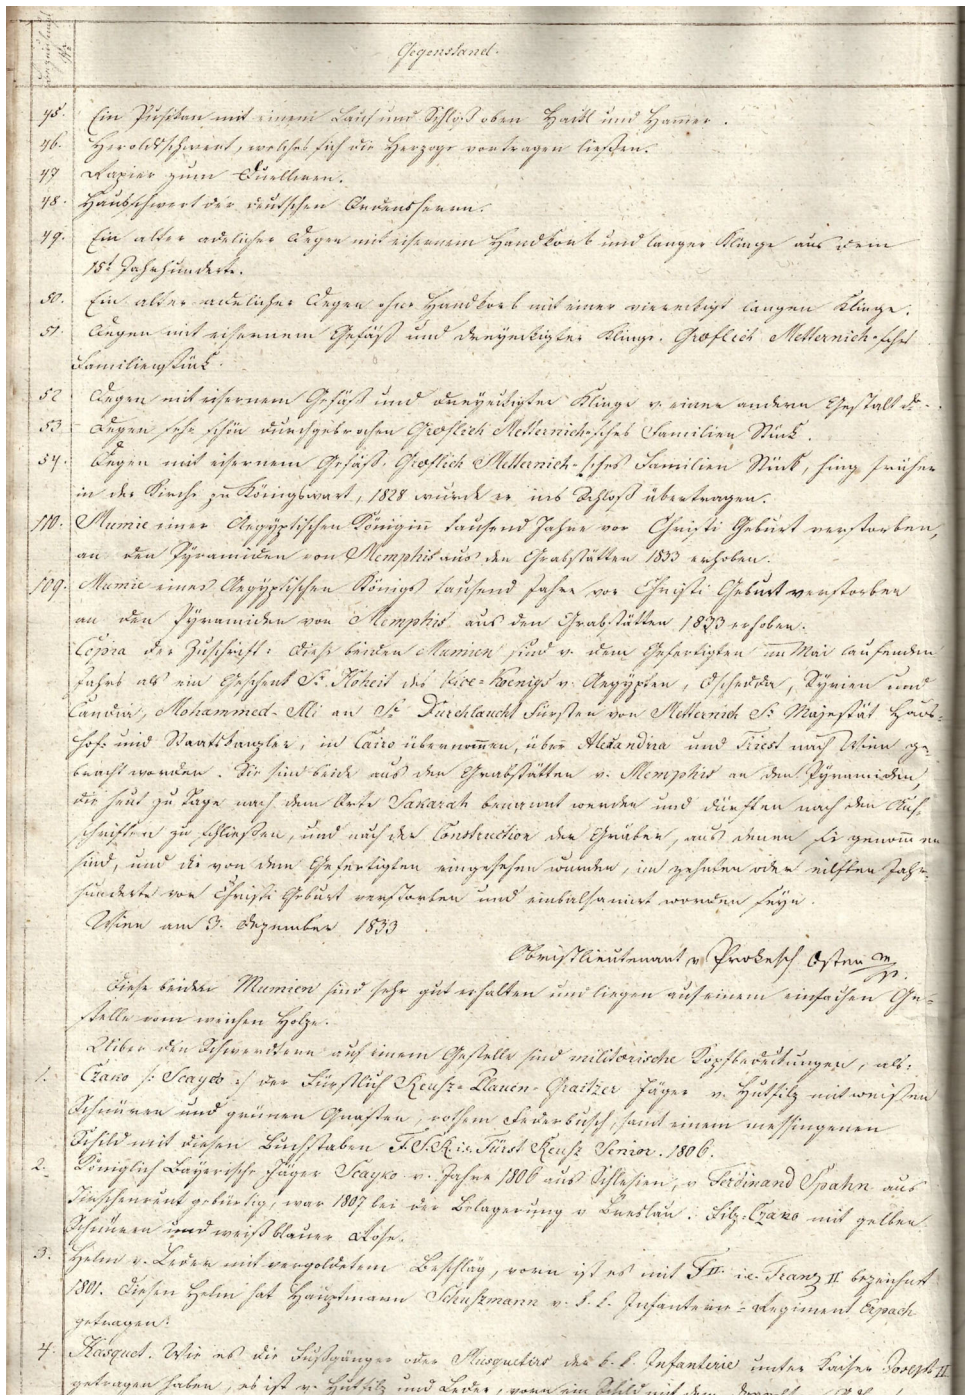 Gegenstand.
45. Ein Puschkan mit einem Lauf und Schloß oben Hackl und Hamer.
46. Heroldschwert, welches sich die Herzoge vortragen ließen.
47 Rapier zum Duelliren.
48. Hausschwert der deutschen Ordensherrn.
49. Ein alter adelicher Degen mit eisernem Handkorb und langer Klinge aus dem
15t Jahrhunderte.
50. Ein alter adelicher Degen ohne Handkorb mit einer viereckigt langen Klinge.
51. Degen mit eisernem Gefäß und dreyeckigter Klinge. Graeflich Metternich'sches
Familienstück.
52 Degen mit eisernem Gefäß und dreyeckigter Klinge v. einer andern Gestalt
53 Degen sehr schön durchgebrochen Graeflich Metternich-sches Familien Stück.
54. Degen mit eisernem Gefäß, Graeflich Metternich-sches Familien Stück, hing früher
in der Kirche zu Königswart, 1828 wurde er ins Schloß übertragen.
110. Mumie einer Aegyptischen Königinn tausend Jahre vor Christi Geburt verstorben,
an den Pyramiden von Memphis aus den Grabstätten 1833 erhoben.
109. Mumie eines Aegyptischen Königs tausend Jahre vor Christi Geburt verstorben
an den Pyramiden von Memphis aus den Grabstätten 1833 erhoben.
Copia der Zuschrift: Diese beiden Mumien sind v. dem Gefertigten im Mai laufenden
Jahrs als ein Geschenk Sr Hoheit des Vice-Koenigs v. Aegypten, Dschedda, Syrien und
Candia, Mohammed-Ali an Sr Durchlaucht Fürsten von Metternich Sr Majestät Haus-
hof- und Staatskanzler, in Cairo übernommen, über Alexandria und Triest nach Wien ge-
bracht worden. Sie sind beide aus den Grabstätten v. Memphis an den Pyramiden,
die heut zu Tage nach dem Orte Sakarah benannt werden und dürften nach den Auf-
schriften zu schließen, und nach der Construction der Gräber, aus denen sie genommen
sind, und die von dem Gefertigten eingesehen wurden, im zehnten oder eilften Jahr-
hunderte vor Christi Geburt verstorben und einbalsamirt worden seyn.
Wien am 3. Dezember 1833
Obristlieutenant v Prokesch Osten
Diese beiden Mumien sind sehr gut erhalten und liegen auf einem einfachen Ge-
stelle vom weichen Holze.
Uiber den Schwerdtern auf einem Gestelle sind militärische Kopfbedeckungen, als:
1. Czako /: Scayko :/ der Fürstlich Reusz-Plauen-Graitzer Jäger v. Hutfilz mit weißen
Schnüren und grünen Quasten, rothem Federbusch, samt einem messingenen
Schild mit diesen Buchstaben F.S.R. i.e. Fürst Reusz Senior. 1806.
2. Königlich Bayerische Jäger Scayko v. Jahre 1806 aus Schlesien, v Ferdinand Spahn aus
Tirschenreut gebürtig, war 1807 bei der Belagerung v Breslau. Filz-Czako mit gelben
Schnüren und weißblauer Rose.
3. Helm v. Leder mit vergoldetem Beschläg, vorn ist es mit F II. i.e. Franz II bezeichnet
1801. Diesen Helm hat Hauptmann Schuszmann v. k. k. Infanterie-Regiment Erpach
getragen.
4. Kasquet. Wie es die Fußgänger oder Musquetirs der k. k. Infanterie unter Kaiser Joseph II
getragen haben, es ist v. Hutfilz und Leder, vorn ein Schild mit dem